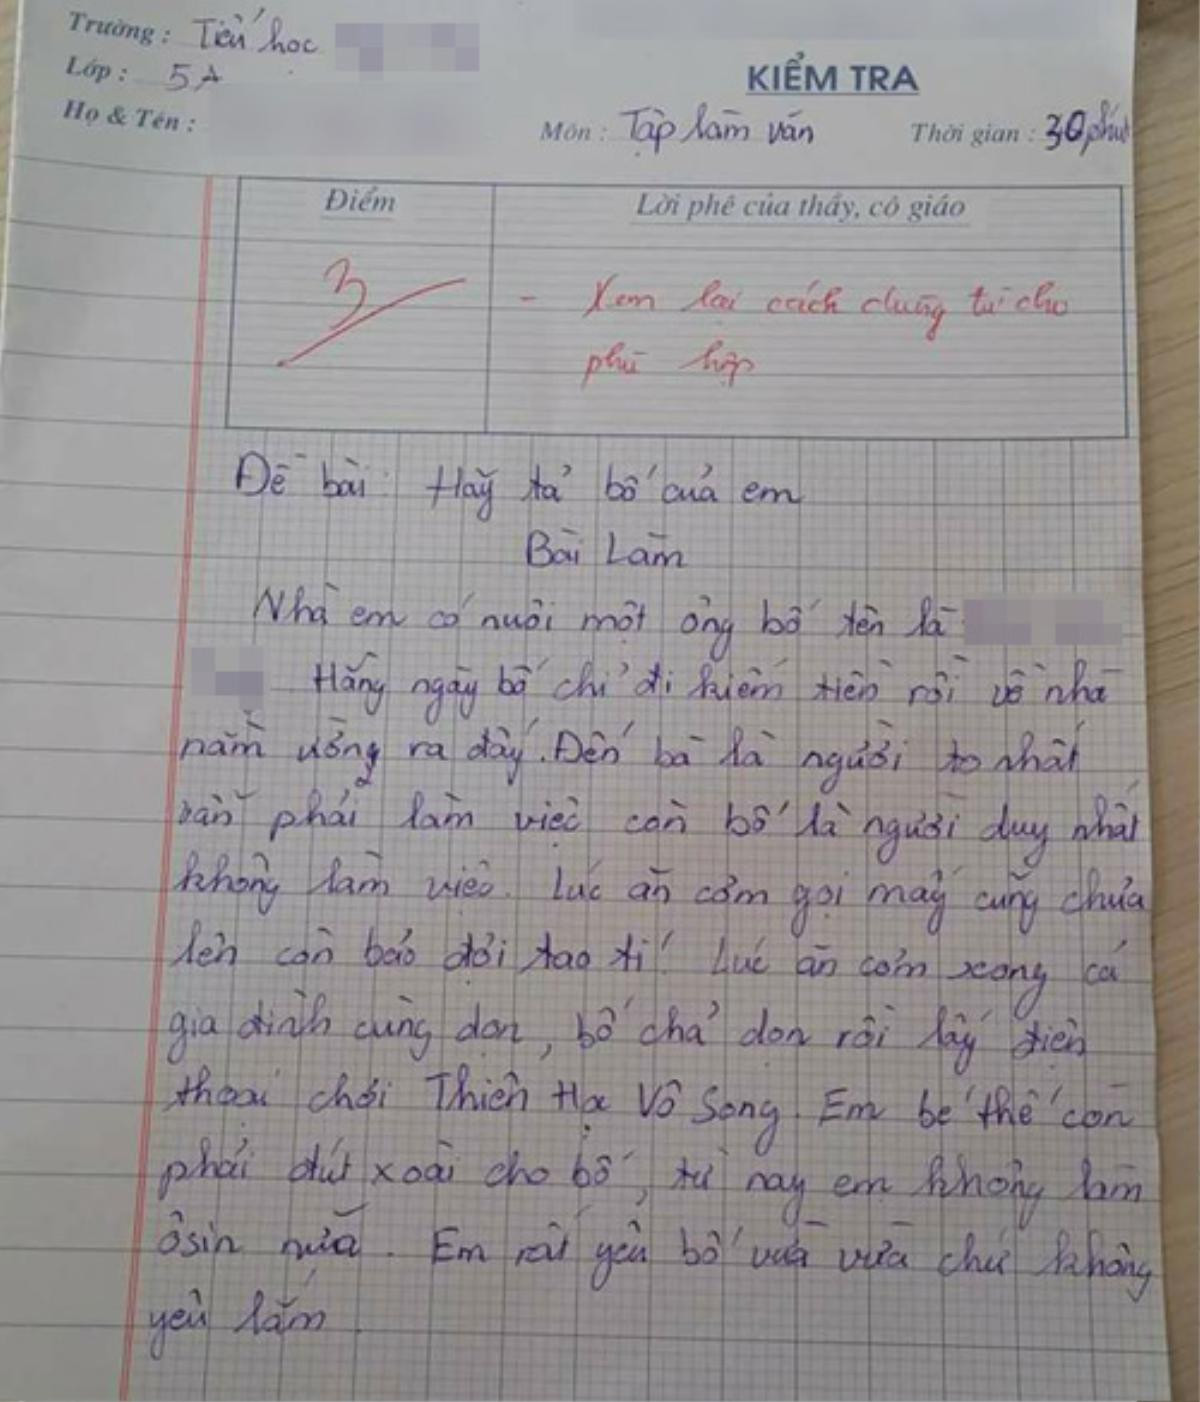 Trường : Tiểu học
Lớp : 5A
Họ & Tên :
KIỂM TRA
Môn : Tập làm văn
Thời gian : 30 phút
Điểm
Lời phê của thầy, cô giáo
3
- Xem lại cách dùng từ cho
phù hợp
Đề bài : Hãy tả bố của em
Bài Làm
Nhà em có nuôi một ông bố tên là
Hằng ngày bố chỉ đi kiếm tiền rồi về nhà
nằm ườn ra đấy. Đến bà là người to nhất
vẫn phải làm việc còn bố là người duy nhất
không làm việc. Lúc ăn cơm gọi mãi cũng chưa
lên còn bảo đợi tao tí! Lúc ăn cơm xong cả
gia đình cùng dọn, bố chả dọn rồi lấy điện
thoại chơi Thiên Hạ Vô Song. Em bé thế còn
phải đút xoài cho bố, từ nay em không làm
ôsin nữa. Em rất yêu bố vừa vừa chứ không
yêu lắm